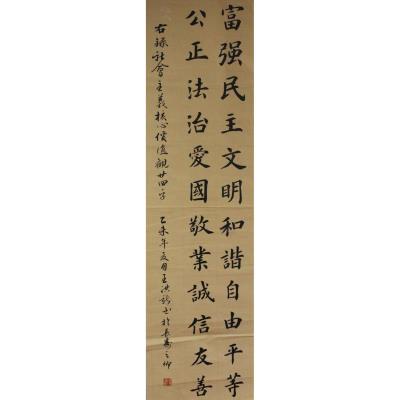 富强民主文明和諧自由平等
公正法治愛國敬業誠信友善
右録社會主義核心價值觀廿四字
乙未年夏月王洪 書於長壽之鄉